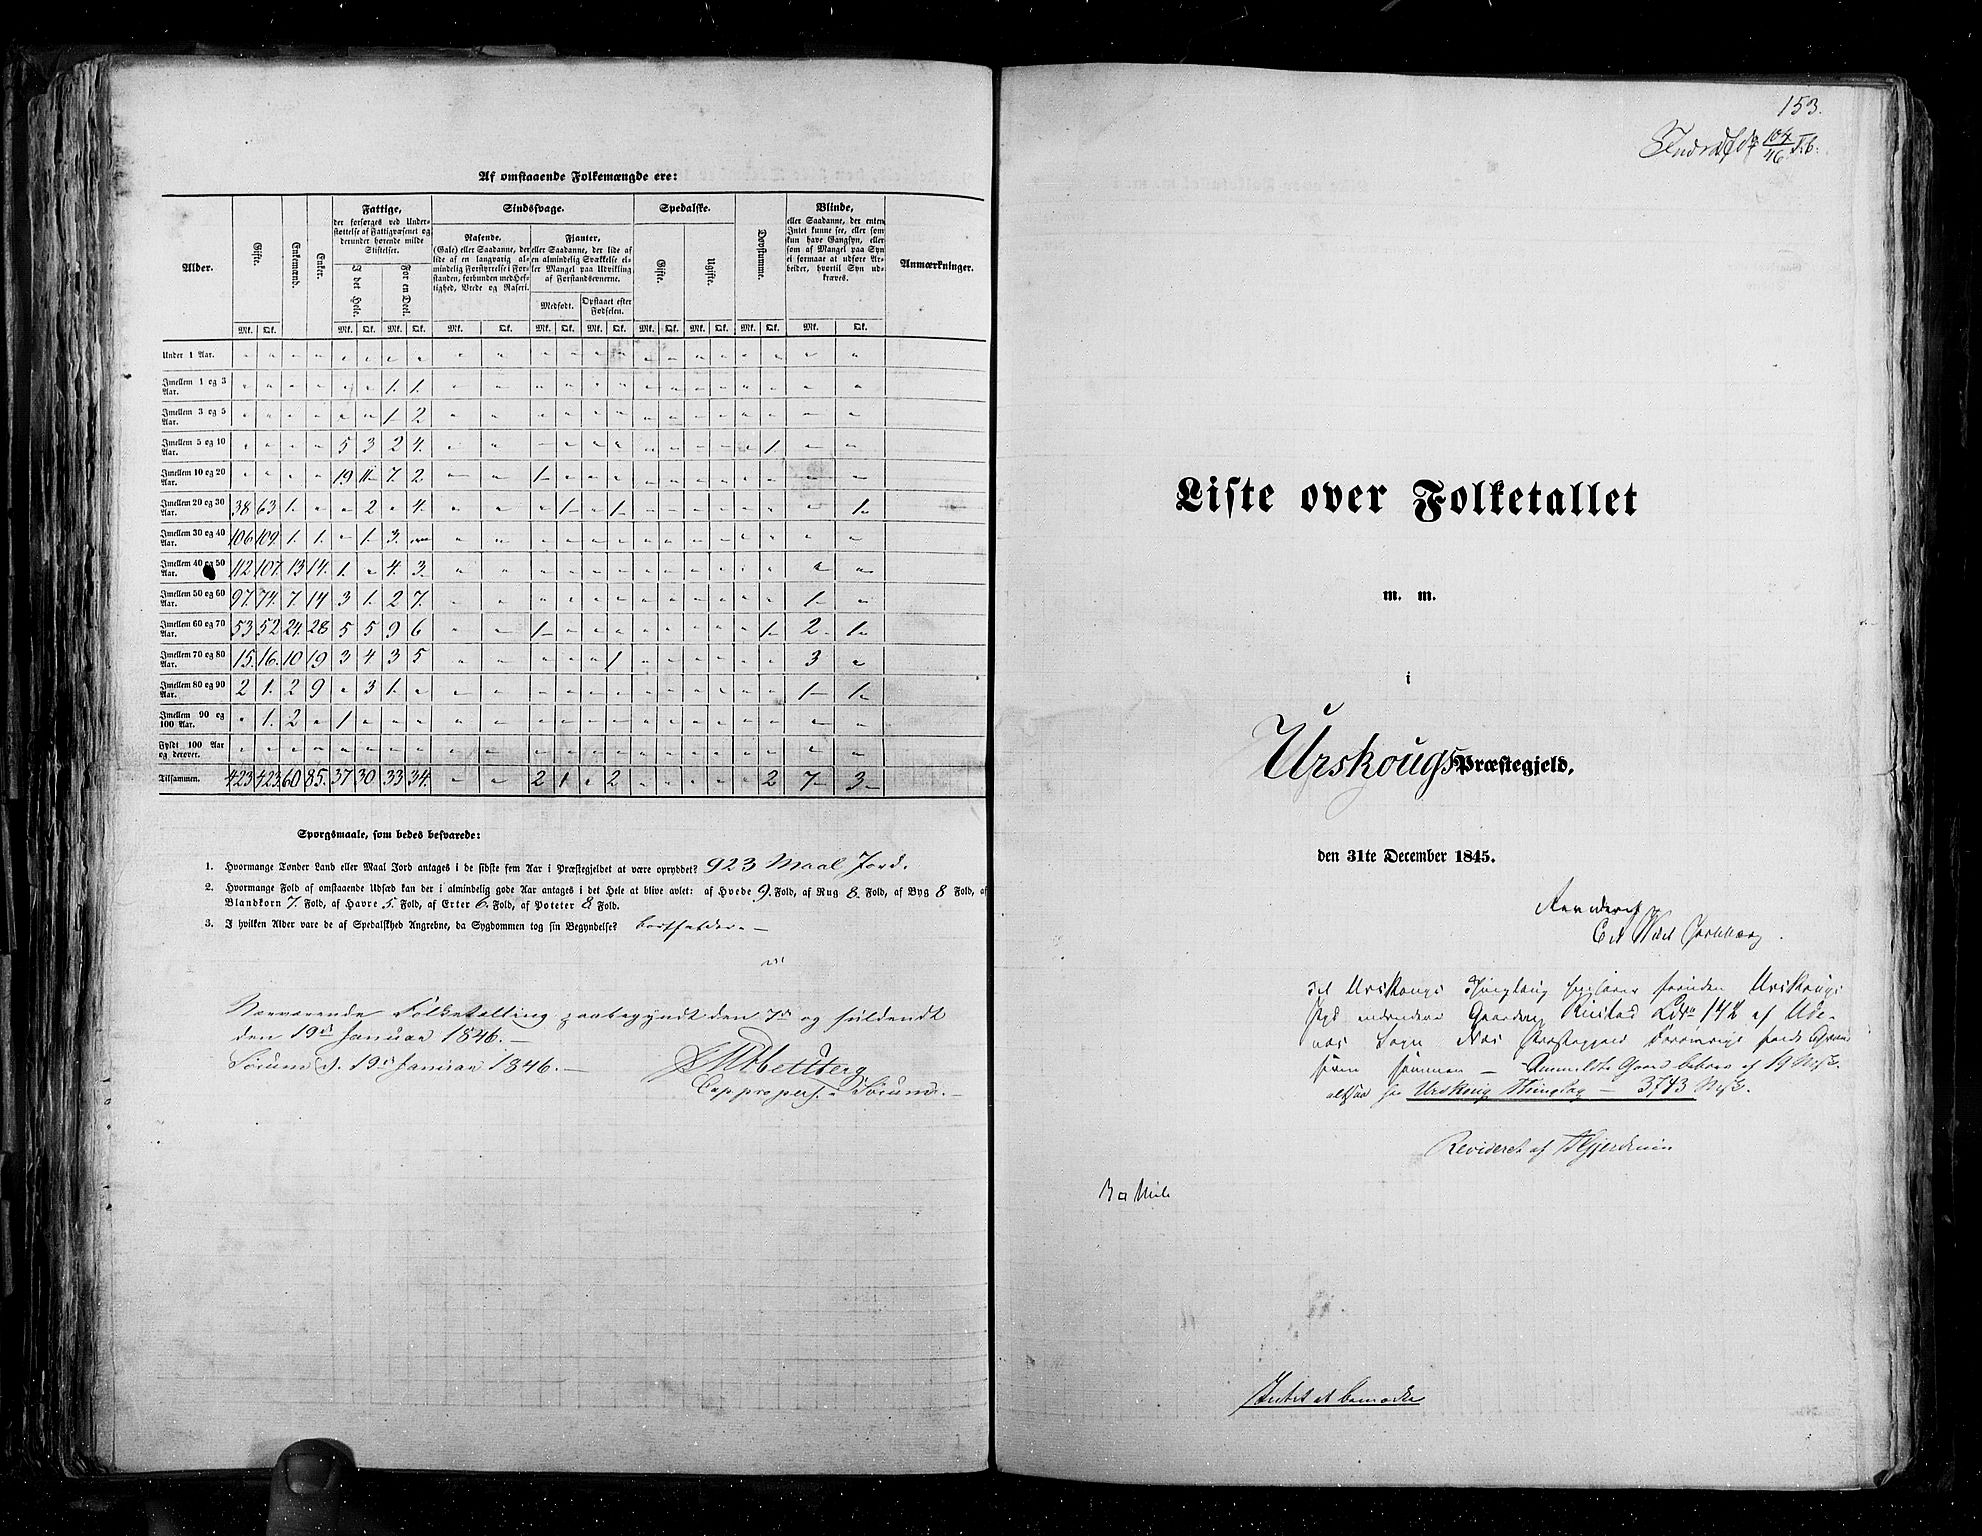 Af omstaaende Folkemængde ere:
Alder. Gifte. Enkemænd. Enker. Fattige, der forsørges ved Understøttelse af Fattigvæsenet og derunder hørende milde Stiftelser. Sindssvage. Spedalske. Døvstumme. Blinde, eller Saadanne, der enten Intet kunne see, eller som kun have Gangsyn, eller som af Mangel paa Syn ei formaae at udføre Arbeider, hvortil Syn udkræves. Anmærkninger.
I det Hele. For en Deel. Rasende. (Gale) eller Saadanne, der lide af en langvarig almindelig Forstyrrelse i Forstanden, forbunden med Heftighed, Vrede og Raseri. Fjanter, eller Saadanne, der lide af en almindelig Svækkelse eller Mangel paa Udvikling af Forstandsevnerne. Gifte. Ugifte.
Medfødt. Opstaaet efter Fødselen.
Mk. Qk. Mk. Qk. Mk. Qk. Mk. Qk. Mk. Qk. Mk. Qk. Mk. Qk. Mk. Qk. Mk. Qk. Mk. Qk.
Under 1 Aar. " " " " " " " " " " " " " " " " " " " " " "
Imellem 1 og 3 Aar. " " " " " " 1. 1. " " " " " " " " " " " " " "
Imellem 3 og 5 Aar. " " " " " " 1 2 " " " " " " " " " " " " " "
Imellem 5 og 10 Aar. " " " " 5 3 2 4. " " " " " " " " " " " 1. " "
Imellem 10 og 20 Aar. " " " " 19 11 7. 2 " " 1 " " " " " " " " " " "
Imellem 20 og 30 Aar. 38 63 1. " " 2 " 4. " " " 1 " 1 " " " " " " " 1
Imellem 30 og 40 Aar. 106 109. 1. 1. " 1. 3. " " " " " " " " " " " " " " "
Imellem 40 og 50 Aar. 112 107. 13 14. 1. " 4. 3. " " " " " " " " " " " " " "
Imellem 50 og 60 Aar. 97. 74. 7. 14 3 1. 2 7. " " " " " " " " " " " " 1 "
Imellem 60 og 70 Aar. 53 52 24. 28 5 5 9 6 " " 1 " " " " " " " " 1 2 1
Imellem 70 og 80 Aar. 15. 16. 10 19 3 4 3 5 " " " " " 1 " " " " " " 3 "
Imellem 80 og 90 Aar. 2 1. 2 9 " 3 1. " " " " " " " " " " " " " 1 1
Imellem 90 og 100 Aar. " 1. 2 " 1 " " " " " " " " " " " " " " " " "
Fyldt 100 Aar og derover. " " " " " " " " " " " " " " " " " " " " " "
Tilsammen. 423 423 60 85. 37 30 33 34. " " 2 1 " 2 " " " " " 2 7 3
Spørgsmaale, som bedes besvarede:
1. Hvormange Tønder Land eller Maal Jord antages i de sidste fem Aar i Præstegjeldet at være opryddet? 923 Maal Jord.
2. Hvormange Fold af omstaaende Udsæd kan der i almindelig gode Aar antages i det Hele at blive avlet: af Hvede 9. Fold, af Rug 8. Fold, af Byg 8 Fold, af
Blandkorn 7. Fold, af Havre 5. Fold, af Erter 6. Fold, af Poteter 8 Fold.
3. I hvilken Alder vare de af Spedalskhed Angrebne, da Sygdommen tog sin Begyndelse? bortfalder. —
Nærværende Folketælling paabegyndt den 7de og fuldendt
den 19de Januar 1846. —
Sørum d. 19de Januar 1846. —
Cap: pro pers. i Sørum. —
153.
Liste over Folketallet
m. m.
i
Urskougs Præstegjeld.
den 31te December 1845.
Revideret
Urskougs Thinglaug Urskougs
Gaarden Rustad L.No 142 af Ude
næs Sogn Næs Præstegjeld
altsaa for Urskoug Thinglag — 3743
Revideret af
Intet at bemærke